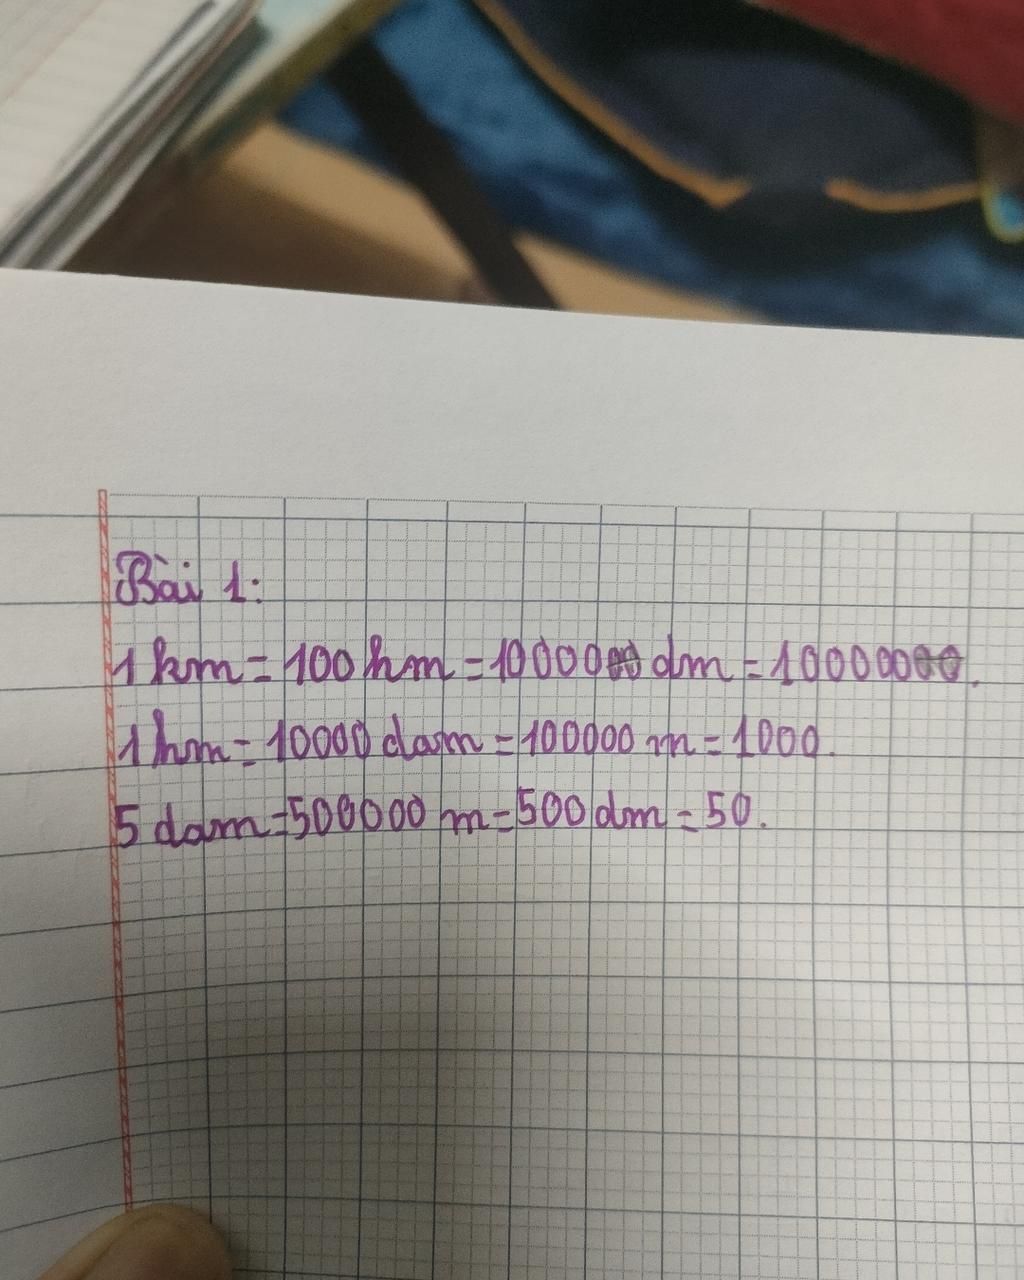 Bài 1:
1 km = 100 hm = 10000 dm = 100000
1 hm = 10000 dam = 100000 m = 1000.
5 dam = 500000 m = 500 dm = 50.